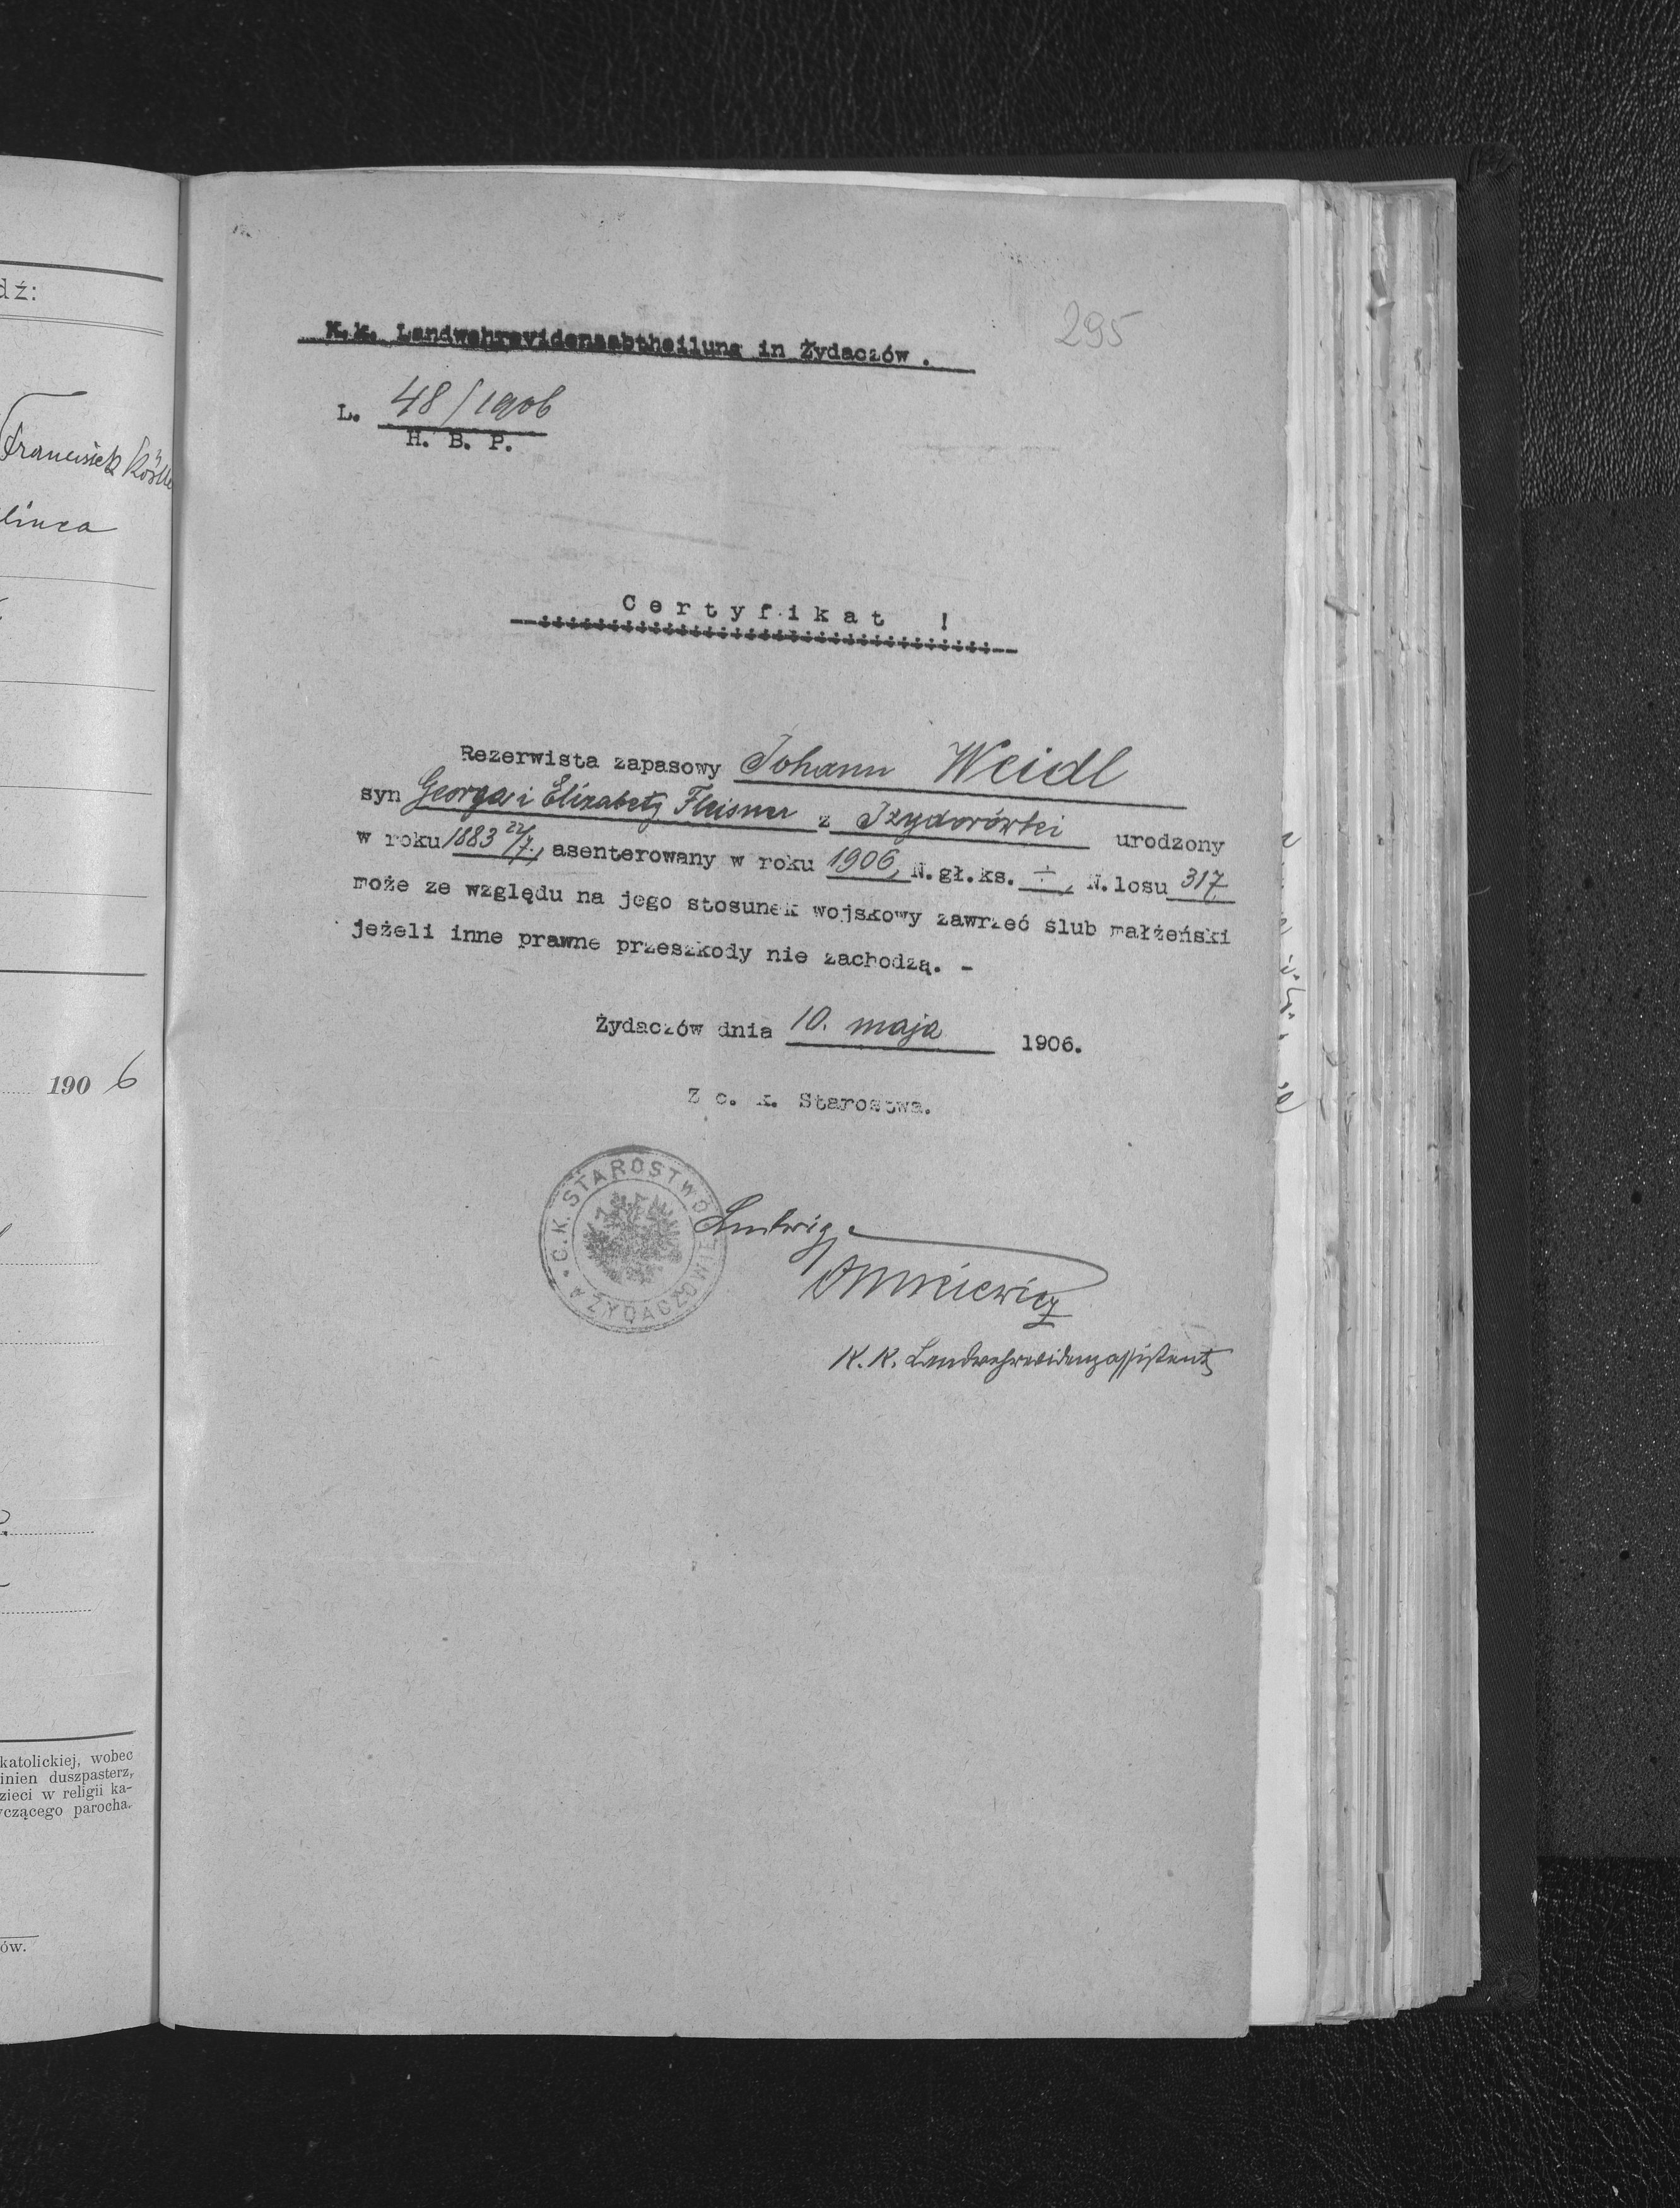 dź:
Franciszek Kösl
linca
190 6
katolickiej, wobec
inien duszpasterz,
zieci w religii ka-
yczącego parocha.
ów.
295
K.k. Landwehrevidenzabtheilung in Żydaczów.
L. 48/1906
H. B. P.
Certyfikat !
Rezerwista zapasowy Johann Weidl
syn Georga i Elizabety Fleisner z Izydorówki urodzony
w roku 1883 22/7., asenterowany w roku 1906, N.gł.ks. ÷, N.losu 317
może ze względu na jego stosunek wojskowy zawrzeć ślub małżeński
jeżeli inne prawne przeszkody nie zachodzą. -
Żydaczów dnia 10. maja 1906.
Z c. k. Starostwa.
C.K. STAROSTWO
W ŻYDACZOWIE
Ludwig
K. K. Landwehrevidenzassistent